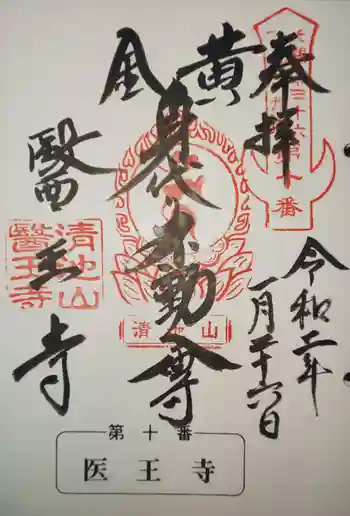 奉拝
黄金
身代不動尊
醫王寺
令和二年
一月二十六日
第十番
清地山
清地山
醫王寺
第十番
医王寺